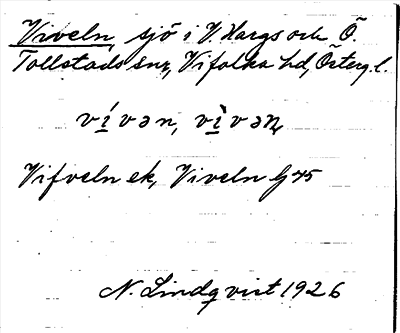 Viveln, sjö i V. Hargs och Ö.
Tollstads snr, Vifolka hd, Österg. l.
vívən, vìvən,
Vifveln ek, Viveln G 45
N. Lindqvist 1926